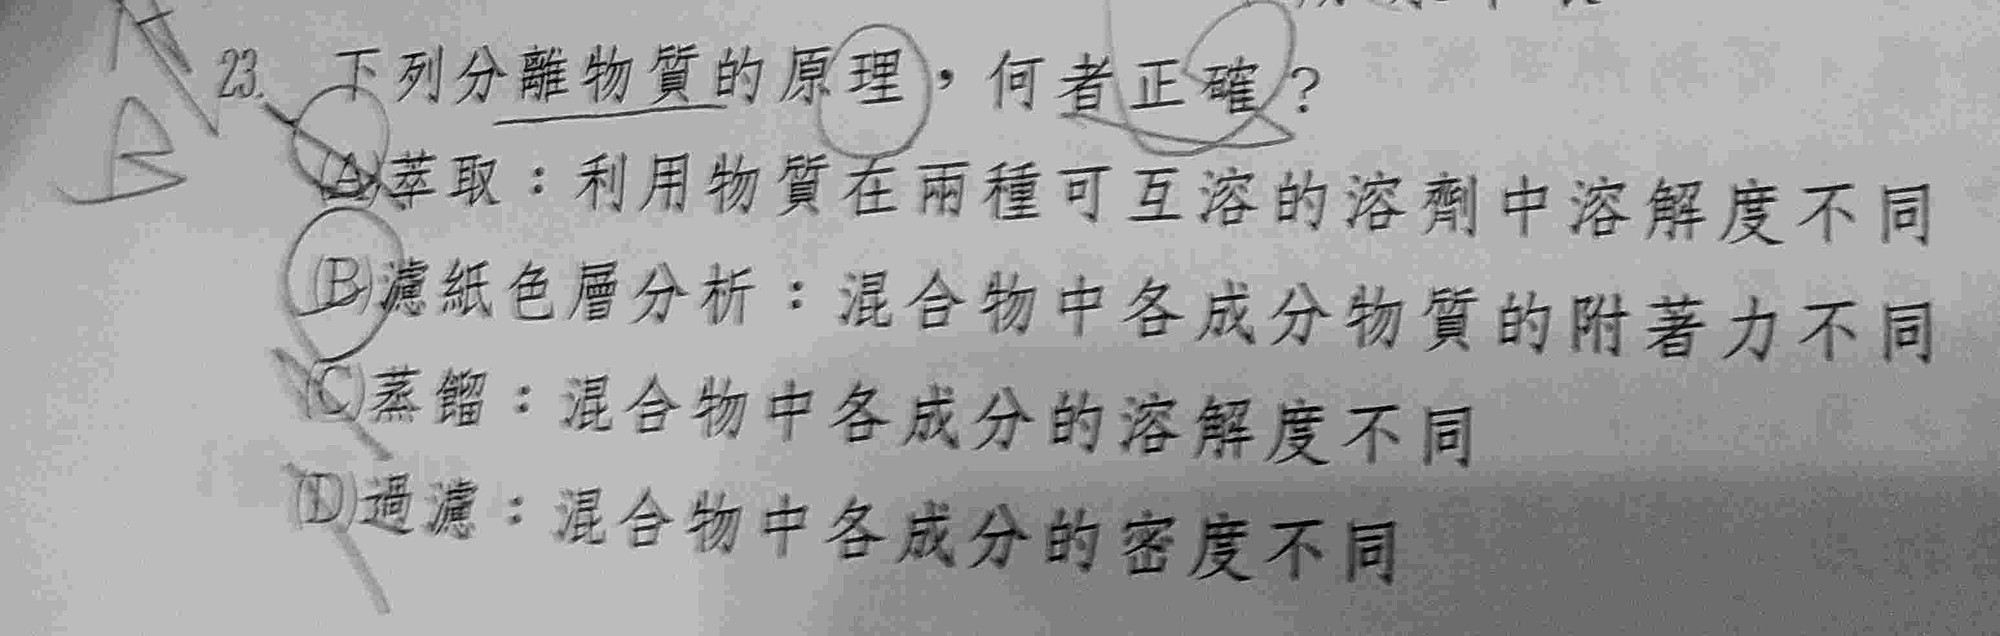 23. 下列分離物質的原理，何者正確？
B
(A)萃取：利用物質在兩種可互溶的溶劑中溶解度不同
(B)濾紙色層分析：混合物中各成分物質的附著力不同
(C)蒸餾：混合物中各成分的溶解度不同
(D)過濾：混合物中各成分的密度不同